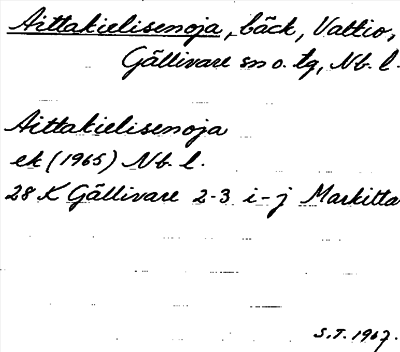 Aittakielisenoja, bäck, Vattio,
Gällivare sn o. tg, Nb. l.
Aittakielisenoja
ek (1965) Nb. l.
28 K Gällivare 2-3 i-j Markitta
S.T. 1967.